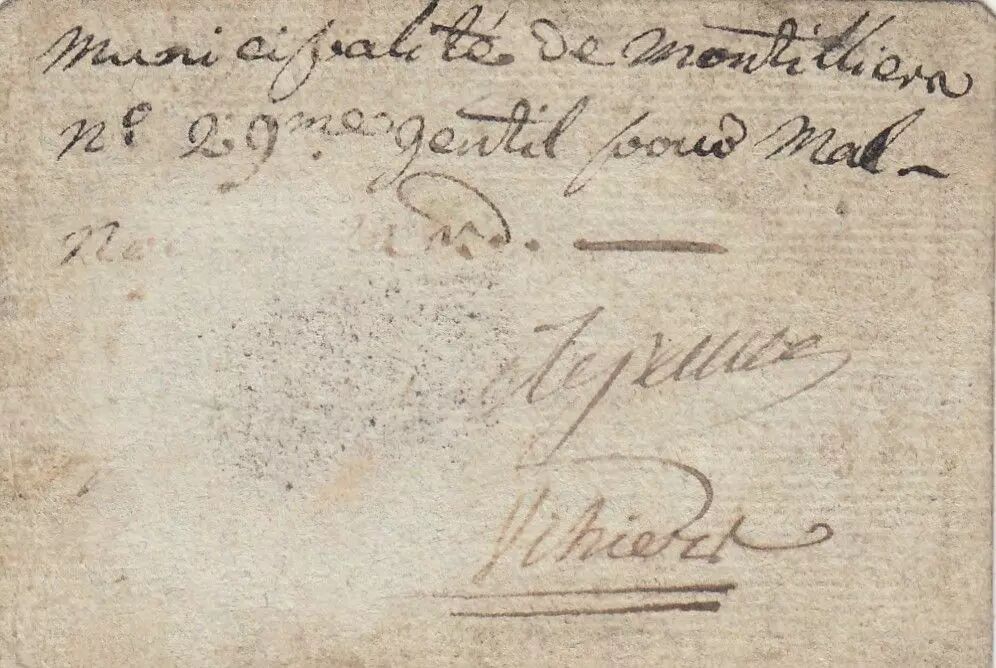 Municipalité de Montilliers
n° 29.me gentil pour Mal-
Vihiers